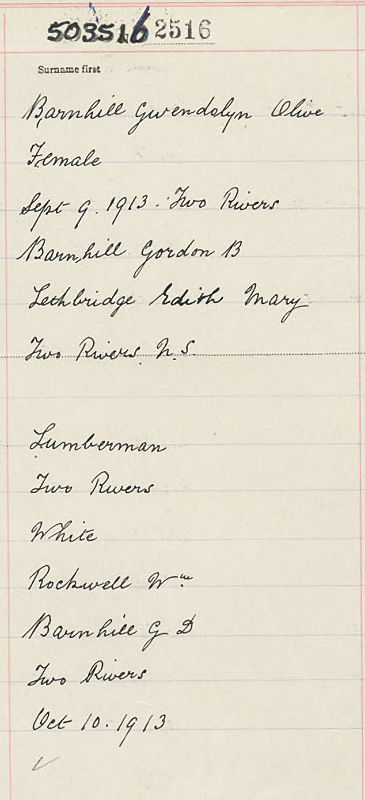 503516 2516
Surname first
Barnhill Gwendolyn Olive
Female
Sept 9. 1913. Two Rivers
Barnhill Gordon B
Lethbridge Edith Mary
Two Rivers, N.S.
Lumberman
Two Rivers
White
Rockwell Wm
Barnhill G D
Two Rivers
Oct 10. 1913